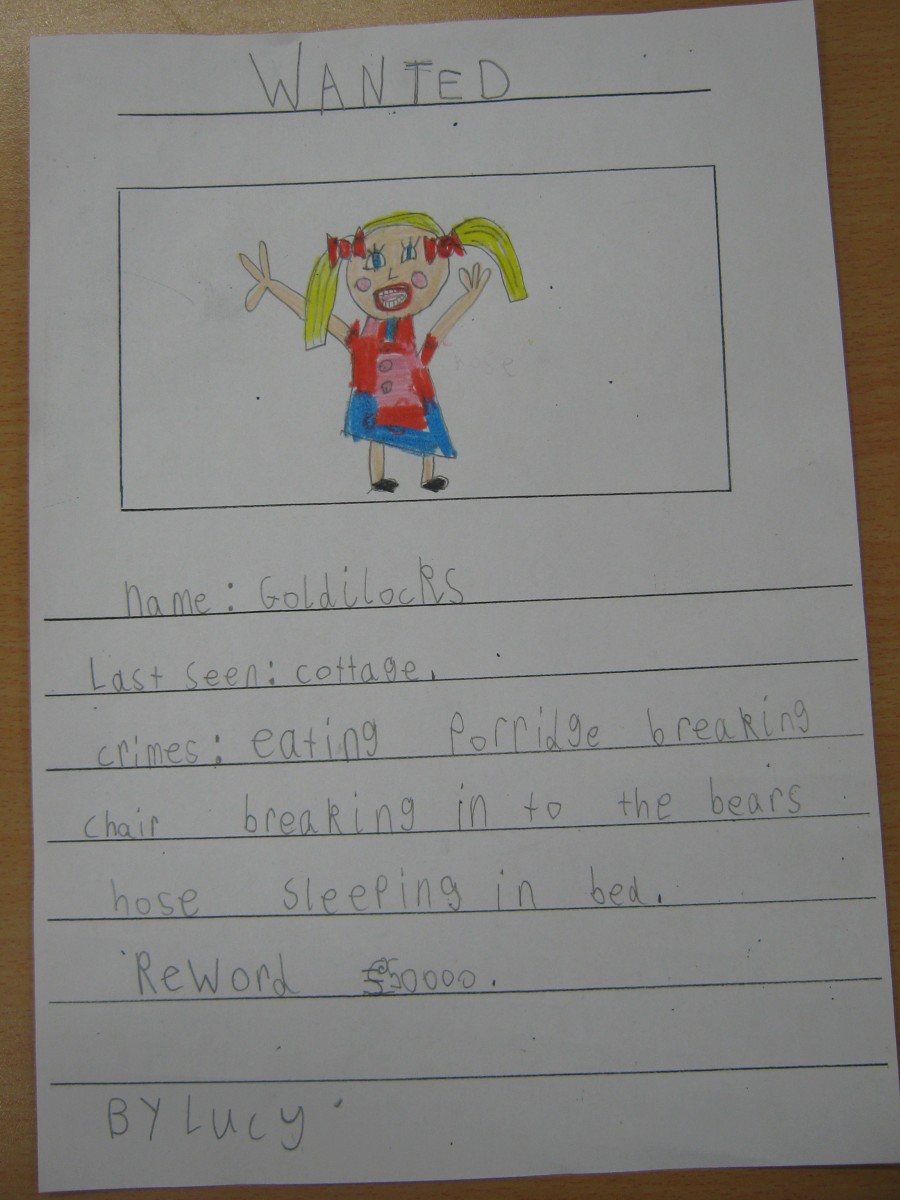 WANTED
Name: Goldilocks
Last seen: cottage.
crimes: eating Porridge breaking
chair breaking in to the bears
hose sleeping in bed.
ReWord £50000.
BY Lucy